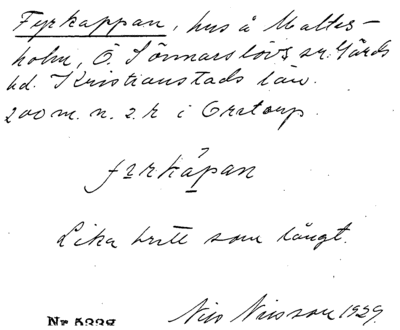 Fyrkappan, hus å Maltes-
holm, Ö. Sönnarslövs sn. Gärds
hd. Kristianstads län.
200 m. n. z. r i Oratorp.
fyrkåpan
Lika brett som långt.
Nils Nilsson 1929.
Nr 5338